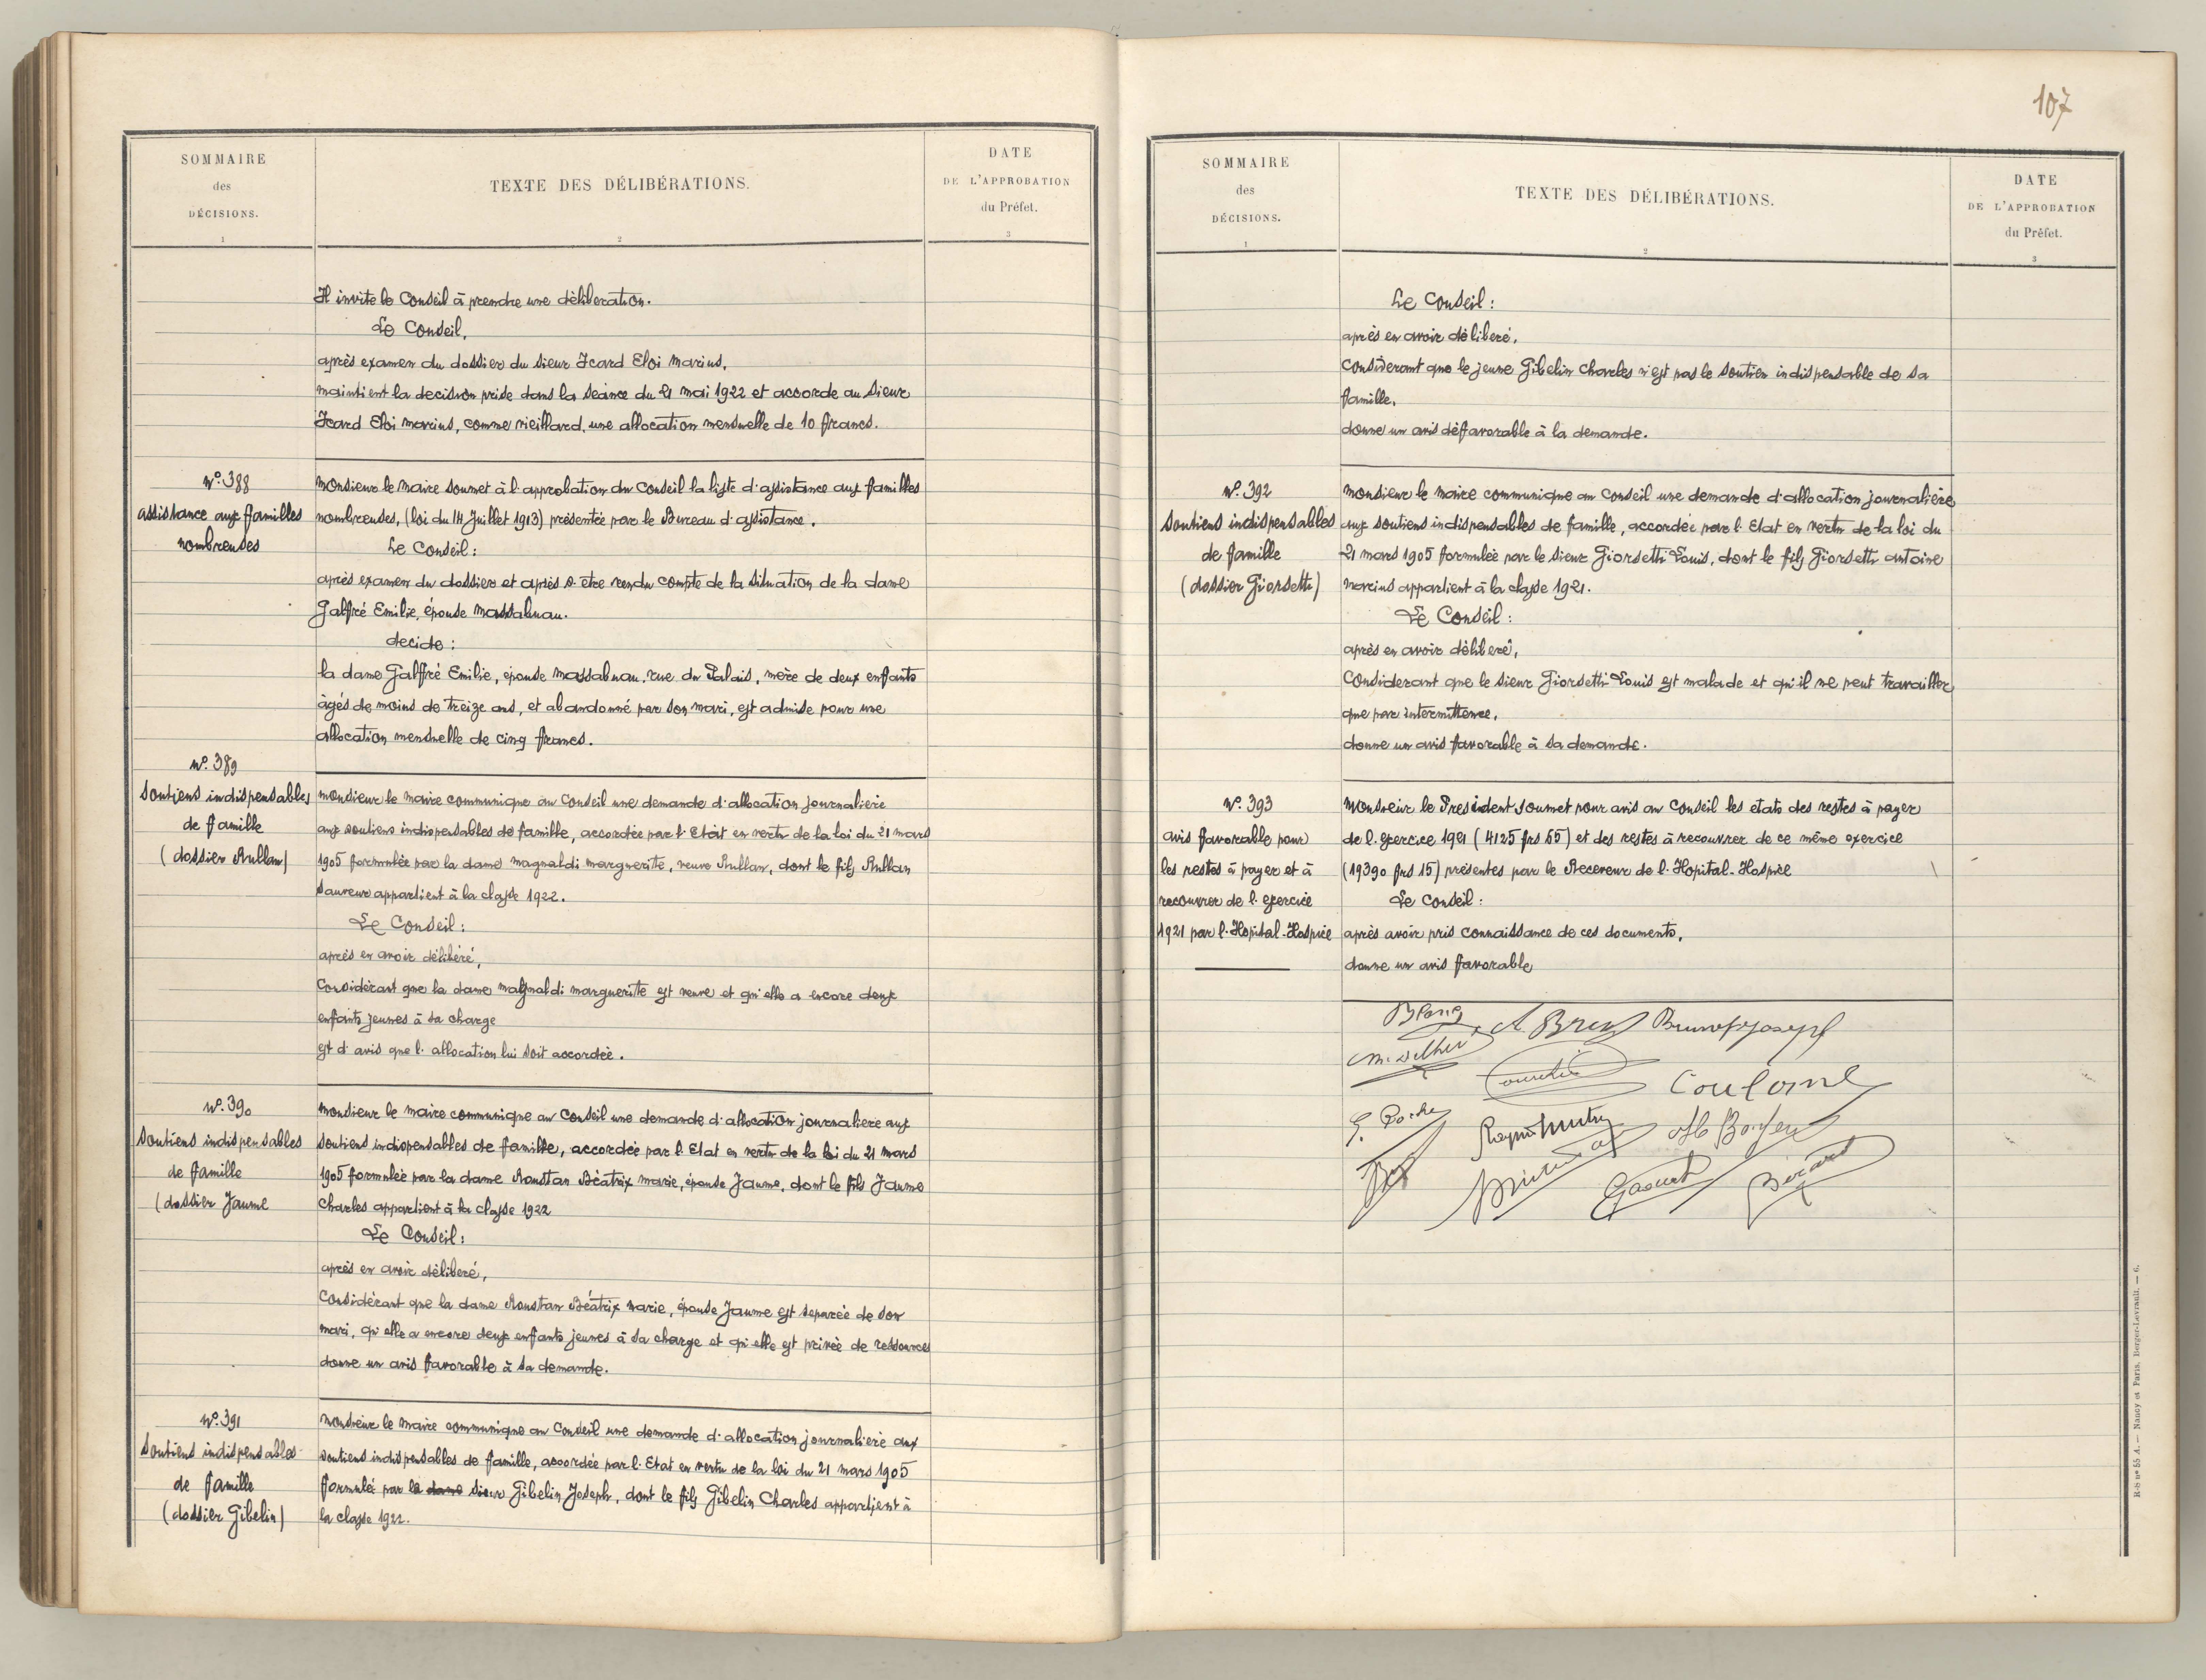 SOMMAIRE
des
DÉCISIONS.
1
TEXTE DES DÉLIBÉRATIONS.
2
DATE
DE L'APPROBATION
du Préfet.
3
Il invite le Conseil à prendre une déliberation.
Le Conseil,
après examen du dossier du sieur Icard Eloi Marius,
maintient la decision prise dans la séance du 21 mai 1922 et accorde au sieur
Icard Eloi Marius, comme vieillard, une allocation mensuelle de 10 francs.
N°. 388
assistance aux familles
nombreuses
Monsieur le Maire soumet à l'approbation du Conseil la liste d'assistance aux familles
nombreuses, (loi du 14 Juillet 1913) présentée par le Bureau d'assistance.
Le Conseil :
après examen du dossier et après s'être rendu compte de la situation de la dame
Galfré Emilie, épouse Massabuau.
decide :
la dame Galfré Emilie, épouse Massabuau, rue du Palais, mère de deux enfants
âgés de moins de treize ans, et abandonné par son mari, est admise pour une
allocation mensuelle de cinq francs.
N°. 389
Soutiens indispensables
de famille
(dossier Rullan)
Monsieur le Maire communique au Conseil une demande d'allocation journalière
aux soutiens indispensables de famille, accordée par l'Etat en vertu de la loi du 21 mars
1905 formulée par la dame Magnaldi Marguerite, veuve Rullan, dont le fils Rullan
Sauveur appartient à la classe 1922.
Le Conseil :
après en avoir délibéré,
Considérant que la dame Magnaldi Marguerite est veuve et qu'elle a encore deux
enfants jeunes à sa charge
est d'avis que l'allocation lui soit accordée.
N°. 390
Soutiens indispensables
de famille
(dossier Jaume
Monsieur le Maire communique au Conseil une demande d'allocation journalière aux
soutiens indispensables de famille, accordée par l'Etat en vertu de la loi du 21 mars
1905 formulée par la dame Roustan Béatrix Marie, épouse Jaume, dont le fils Jaume
Charles appartient à la classe 1922
Le Conseil :
après en avoir délibéré,
Considérant que la dame Roustan Béatrix Marie, épouse Jaume est séparée de son
mari, qu'elle a encore deux enfants jeunes à sa charge et qu'elle est privée de ressources
donne un avis favorable à sa demande.
N°. 391
Soutiens indispensables
de famille
(dossier Gibelin)
Monsieur le Maire communique au Conseil une demande d'allocation journalière aux
soutiens indispensables de famille, accordée par l'Etat en vertu de la loi du 21 mars 1905
formulée par le dame sieur Gibelin Joseph, dont le fils Gibelin Charles appartient à
la classe 1922.
107
SOMMAIRE
des
DÉCISIONS.
1
TEXTE DES DÉLIBÉRATIONS.
2
DATE
DE L'APPROBATION
du Préfet.
3
Le Conseil :
après en avoir déliberé,
Considerant que le jeune Gibelin Charles n'est pas le soutien indispensable de sa
famille,
donne un avis défavorable à la demande.
N°. 392
Soutiens indispensables
de famille
(dossier Giorsetti)
Monsieur le Maire communique au Conseil une demande d'allocation journalière
aux soutiens indispensables de famille, accordée par l'Etat en vertu de la loi du
21 mars 1905 formulée par le sieur Giorsetti Louis, dont le fils Giorsetti Antoine
Marius appartient à la classe 1921.
Le Conseil :
après en avoir déliberé,
Considerant que le sieur Giorsetti Louis est malade et qu'il ne peut travailler
que par intermittence,
donne un avis favorable à sa demande.
N°. 393
avis favorable pour
les restes à payer et à
recouvrer de l'exercice
1921 par l'Hopital-Hospice
Monsieur le President soumet pour avis au Conseil les etats des restes à payer
de l'exercice 1921 (4125 frs 55) et des restes à recouvrer de ce même exercice
(19390 frs 15) présentes par le Receveur de l'Hopital-Hospice
Le Conseil :
après avoir pris connaissance de ces documents,
donne un avis favorable
Blanq
A Brun
Coulomb
G. Roche
Bérard
R-S n° 55 A. — Nancy et Paris, Berger-Levrault. — 6.